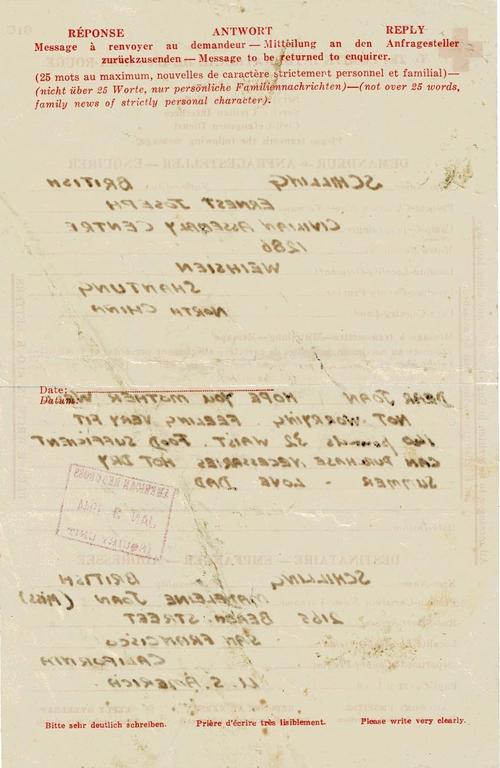 RÉPONSE ANTWORT REPLY
Message à renvoyer au demandeur — Mitteilung an den Anfragesteller
zurückzusenden — Message to be returned to enquirer.
(25 mots au maximum, nouvelles de caractère strictement personnel et familial)—
(nicht über 25 Worte, nur persönliche Familiennachrichten)—(not over 25 words,
family news of strictly personal character).
SCHILLING BRITISH
ERNEST JOSEPH
CIVILIAN ASSEMBLY CENTRE
1286
WEIHSIEN
SHANTUNG
NORTH CHINA
Date:
Datum:
DEAR JOAN HOPE YOU MOTHER WELL
NOT WORRYING. FEELING VERY FIT
140 pounds 32 WAIST. FOOD SUFFICIENT
CAN PURCHASE NECESSARIES HOT DRY
SUMMER - LOVE DAD
AMERICAN RED CROSS
JAN 3 1944
INQUIRY UNIT
DESTINATAIRE — EMPFÄNGER — ADDRESSEE
SCHILLING BRITISH
MADELEINE JOAN (MISS)
2165 BEACH STREET
SAN FRANCISCO
CALIFORNIA
U.S. AMERICA
Bitte sehr deutlich schreiben. Prière d'écrire très lisiblement. Please write very clearly.